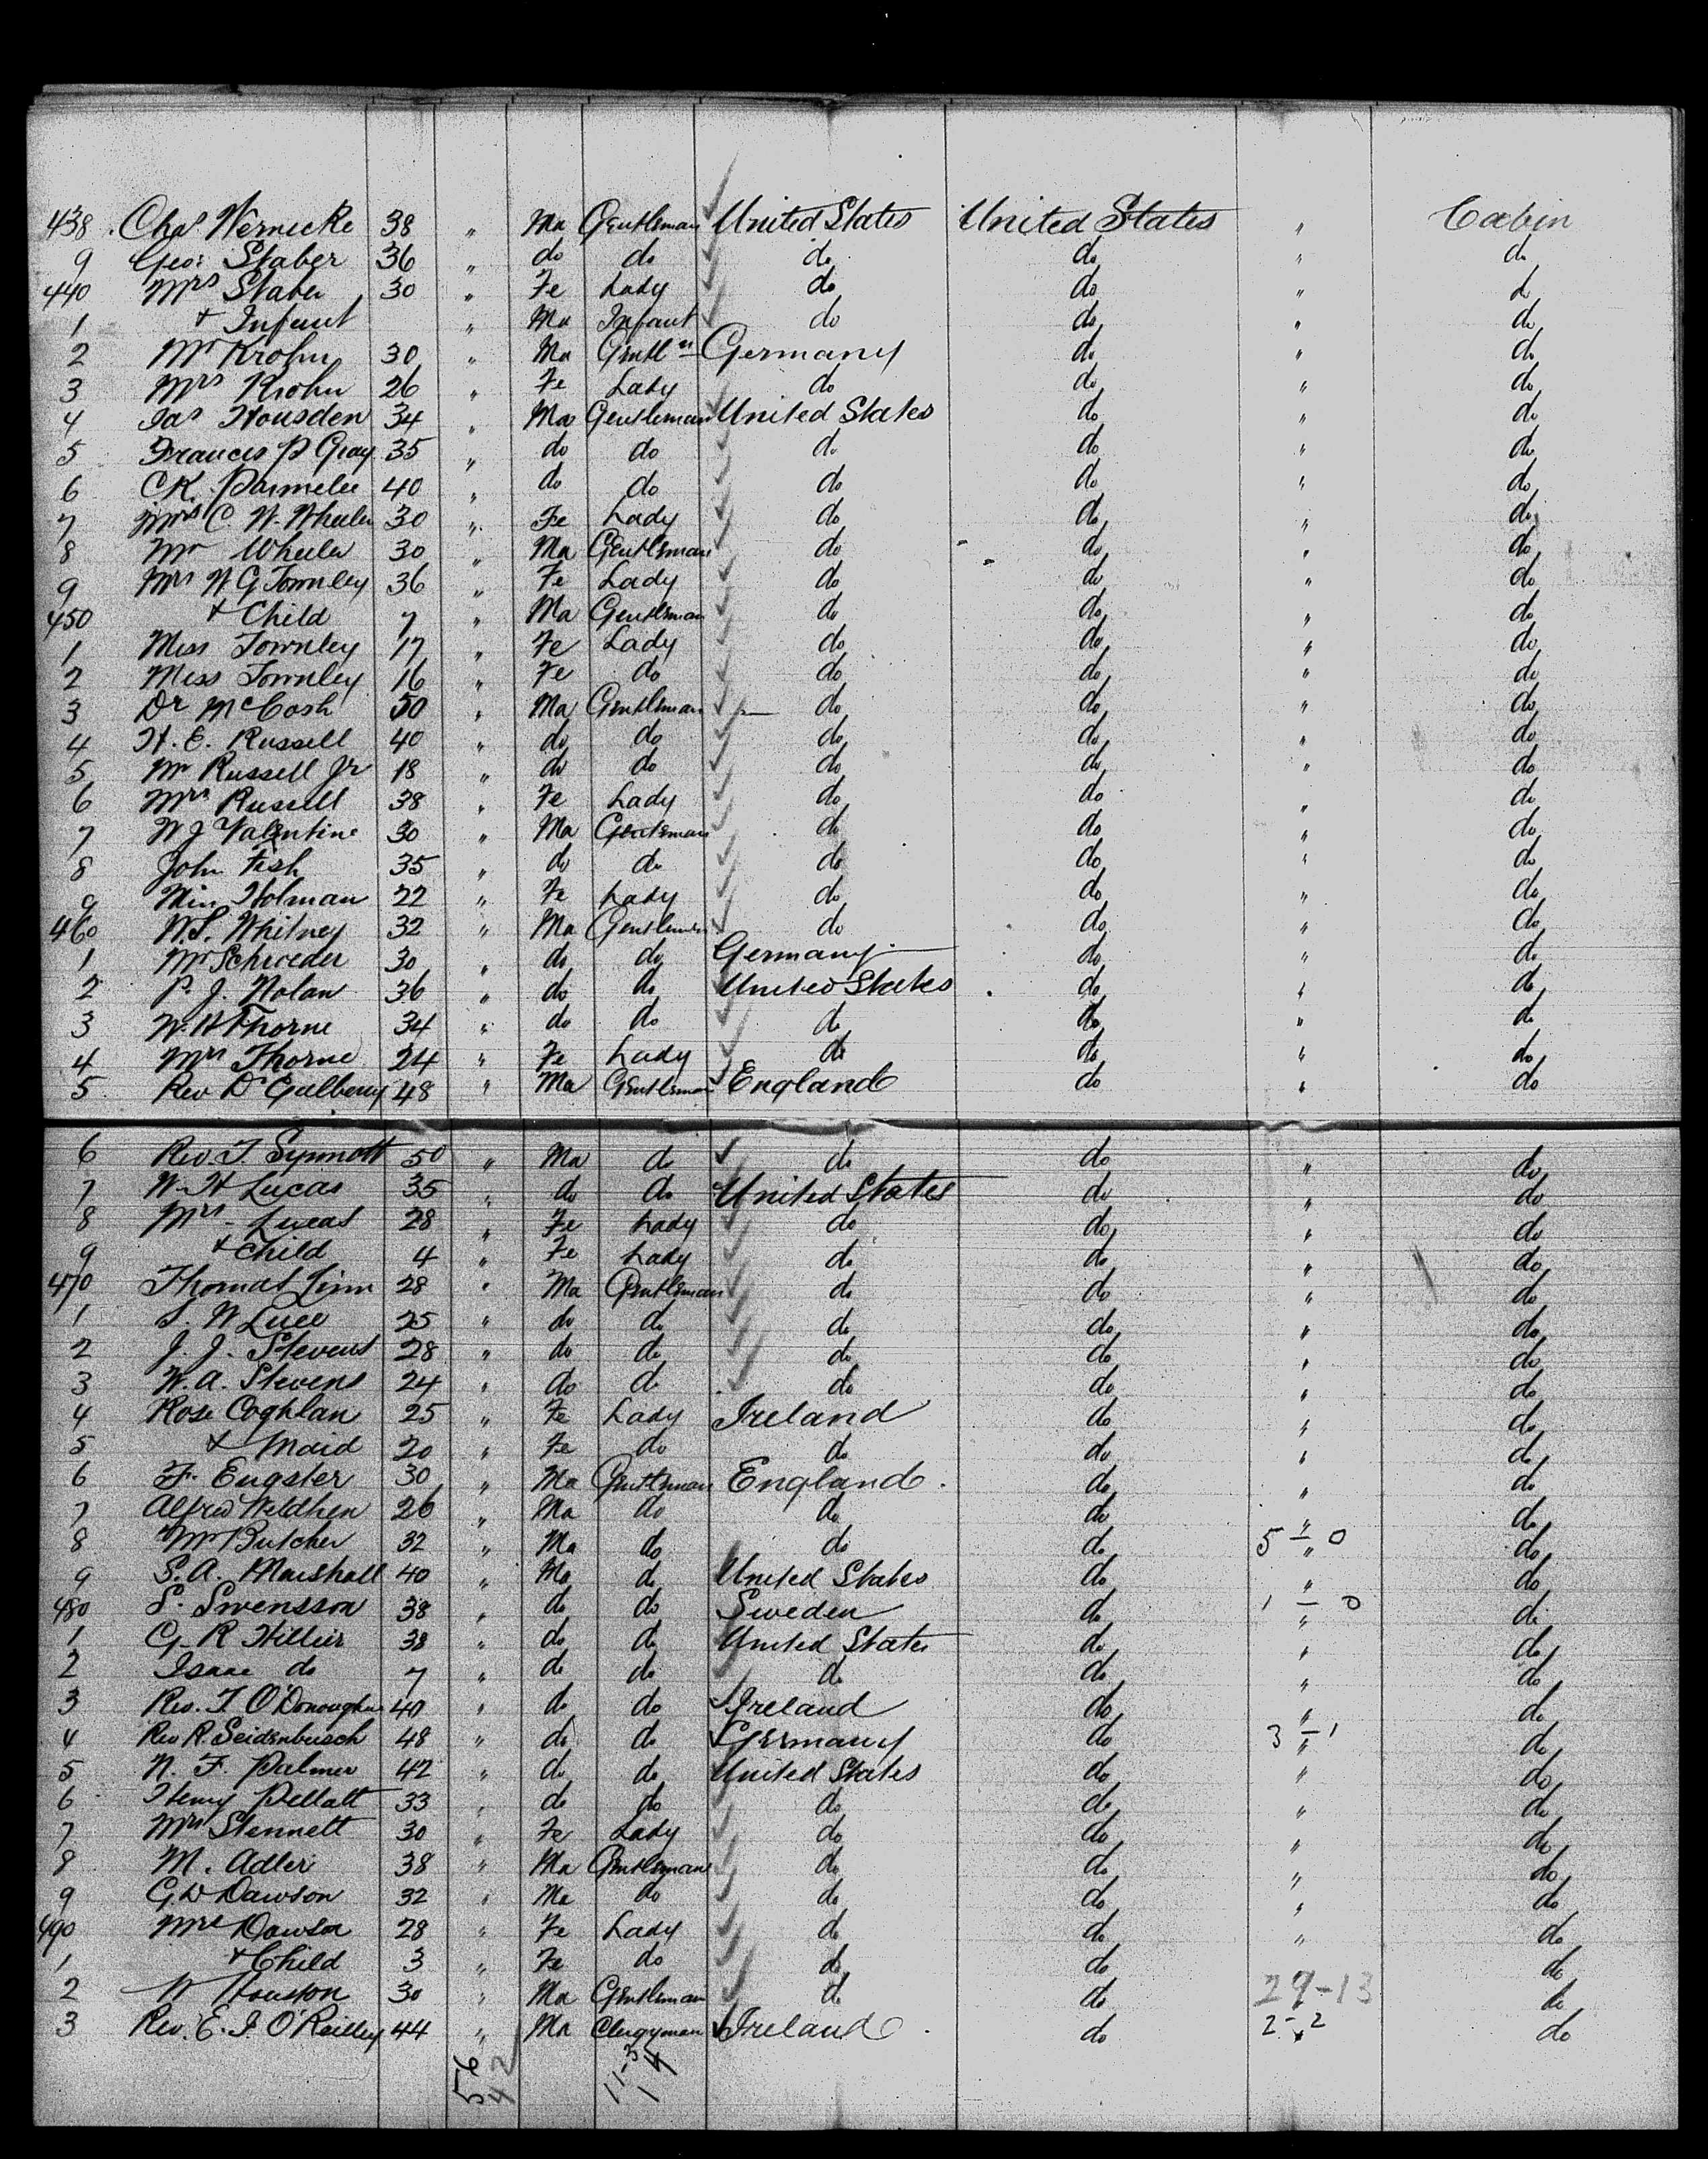 438 Chas Wernecke 38 " Ma Gentleman United States United States " Cabin
9 Geo: Staber 36 " do do do do " do
440 Mrs Staber 30 " Fe Lady do do " do
1 + Infant " Ma Infant do do " do
2 Mr Krohn 30 " Ma Gentln Germany do " do
3 Mrs Krohn 26 " Fe Lady do do " do
4 Jas Housden 34 " Ma Gentleman United States do " do
5 Frances P Gray 35 " do do do do " do
6 C K. Parmelee 40 " do do do do " do
7 Mrs C W. Wheeler 30 " Fe Lady do do " do
8 Mr Wheeler 30 " Ma Gentleman do do " do
9 Mrs W G Townley 36 " Fe Lady do do " do
450 + Child 7 " Ma Gentleman do do " do
1 Miss Townley 17 " Fe Lady do do " do
2 Miss Townley 16 " Fe do do do " do
3 Dr McCosh 50 " Ma Gentleman do do " do
4 H. E. Russell 40 " do do do do " do
5 Mr Russell Jr 18 " do do do do " do
6 Mrs Russell 38 " Fe Lady do do " do
7 W J Valentine 30 " Ma Gentleman do do " do
8 John Fish 35 " do do do do " do
9 Miss Holman 22 " Fe Lady do do " do
460 W. S. Whitney 32 " Ma Gentleman do do " do
1 Mr Schroeder 30 " do do Germany do " do
2 P. J. Nolan 36 " do do United States do " do
3 W. H Thorne 34 " do do do do " do
4 Mrs Thorne 24 " Fe Lady do do " do
5 Rev Dr 48 " Ma Gentleman England do " do
6 Rev. T. Synnott 50 " Ma do do do " do
7 W. H Lucas 35 " do do United States do " do
8 Mrs Lucas 28 " Fe Lady do do " do
9 + Child 4 " Fe Lady do do " do
470 Thomas Linn 28 " Ma Gentleman do do " do
1 S. W Luce 25 " do do do do " do
2 J. J. Stevens 28 " do do do do " do
3 W. A. Stevens 24 " do do do do " do
4 Rose Coghlan 25 " Fe Lady Ireland do " do
5 + Maid 20 " Fe do do do " do
6 F. Eugster 30 " Ma Gentleman England do " do
7 Alfred 26 " Ma do do do " do
8 Mr Butcher 32 " Ma do do do 5 - 0 " do
9 S. A. Marshall 40 " Ma do United States do " do
480 S. Swensson 38 " do do Sweden do 1 - 0 " do
1 G. R Hillier 38 " do do United States do " do
2 Isaac do 7 " do do do do " do
3 Rev. T O'Donoughue 40 " do do Ireland do " do
4 Rev R. Seidenbusch 48 " do do Germany do 3 - 1 " do
5 N. F. Palmer 42 " do do United States do " do
6 Henry Pellatt 33 " do do do do " do
7 Mrs Stennett 30 " Fe Lady do do " do
8 M. Adler 38 " Ma Gentleman do do " do
9 G W Dawson 32 " Ma do do do " do
490 Mrs Dawson 28 " Fe Lady do do " do
1 + Child 3 " Fe do do do do
2 W Houston 30 " Ma Gentleman do do 29-13 do
3 Rev. E. I O'Reilley 44 " Ma Clergyman Ireland do 2-2 do
56 11-3
42 14